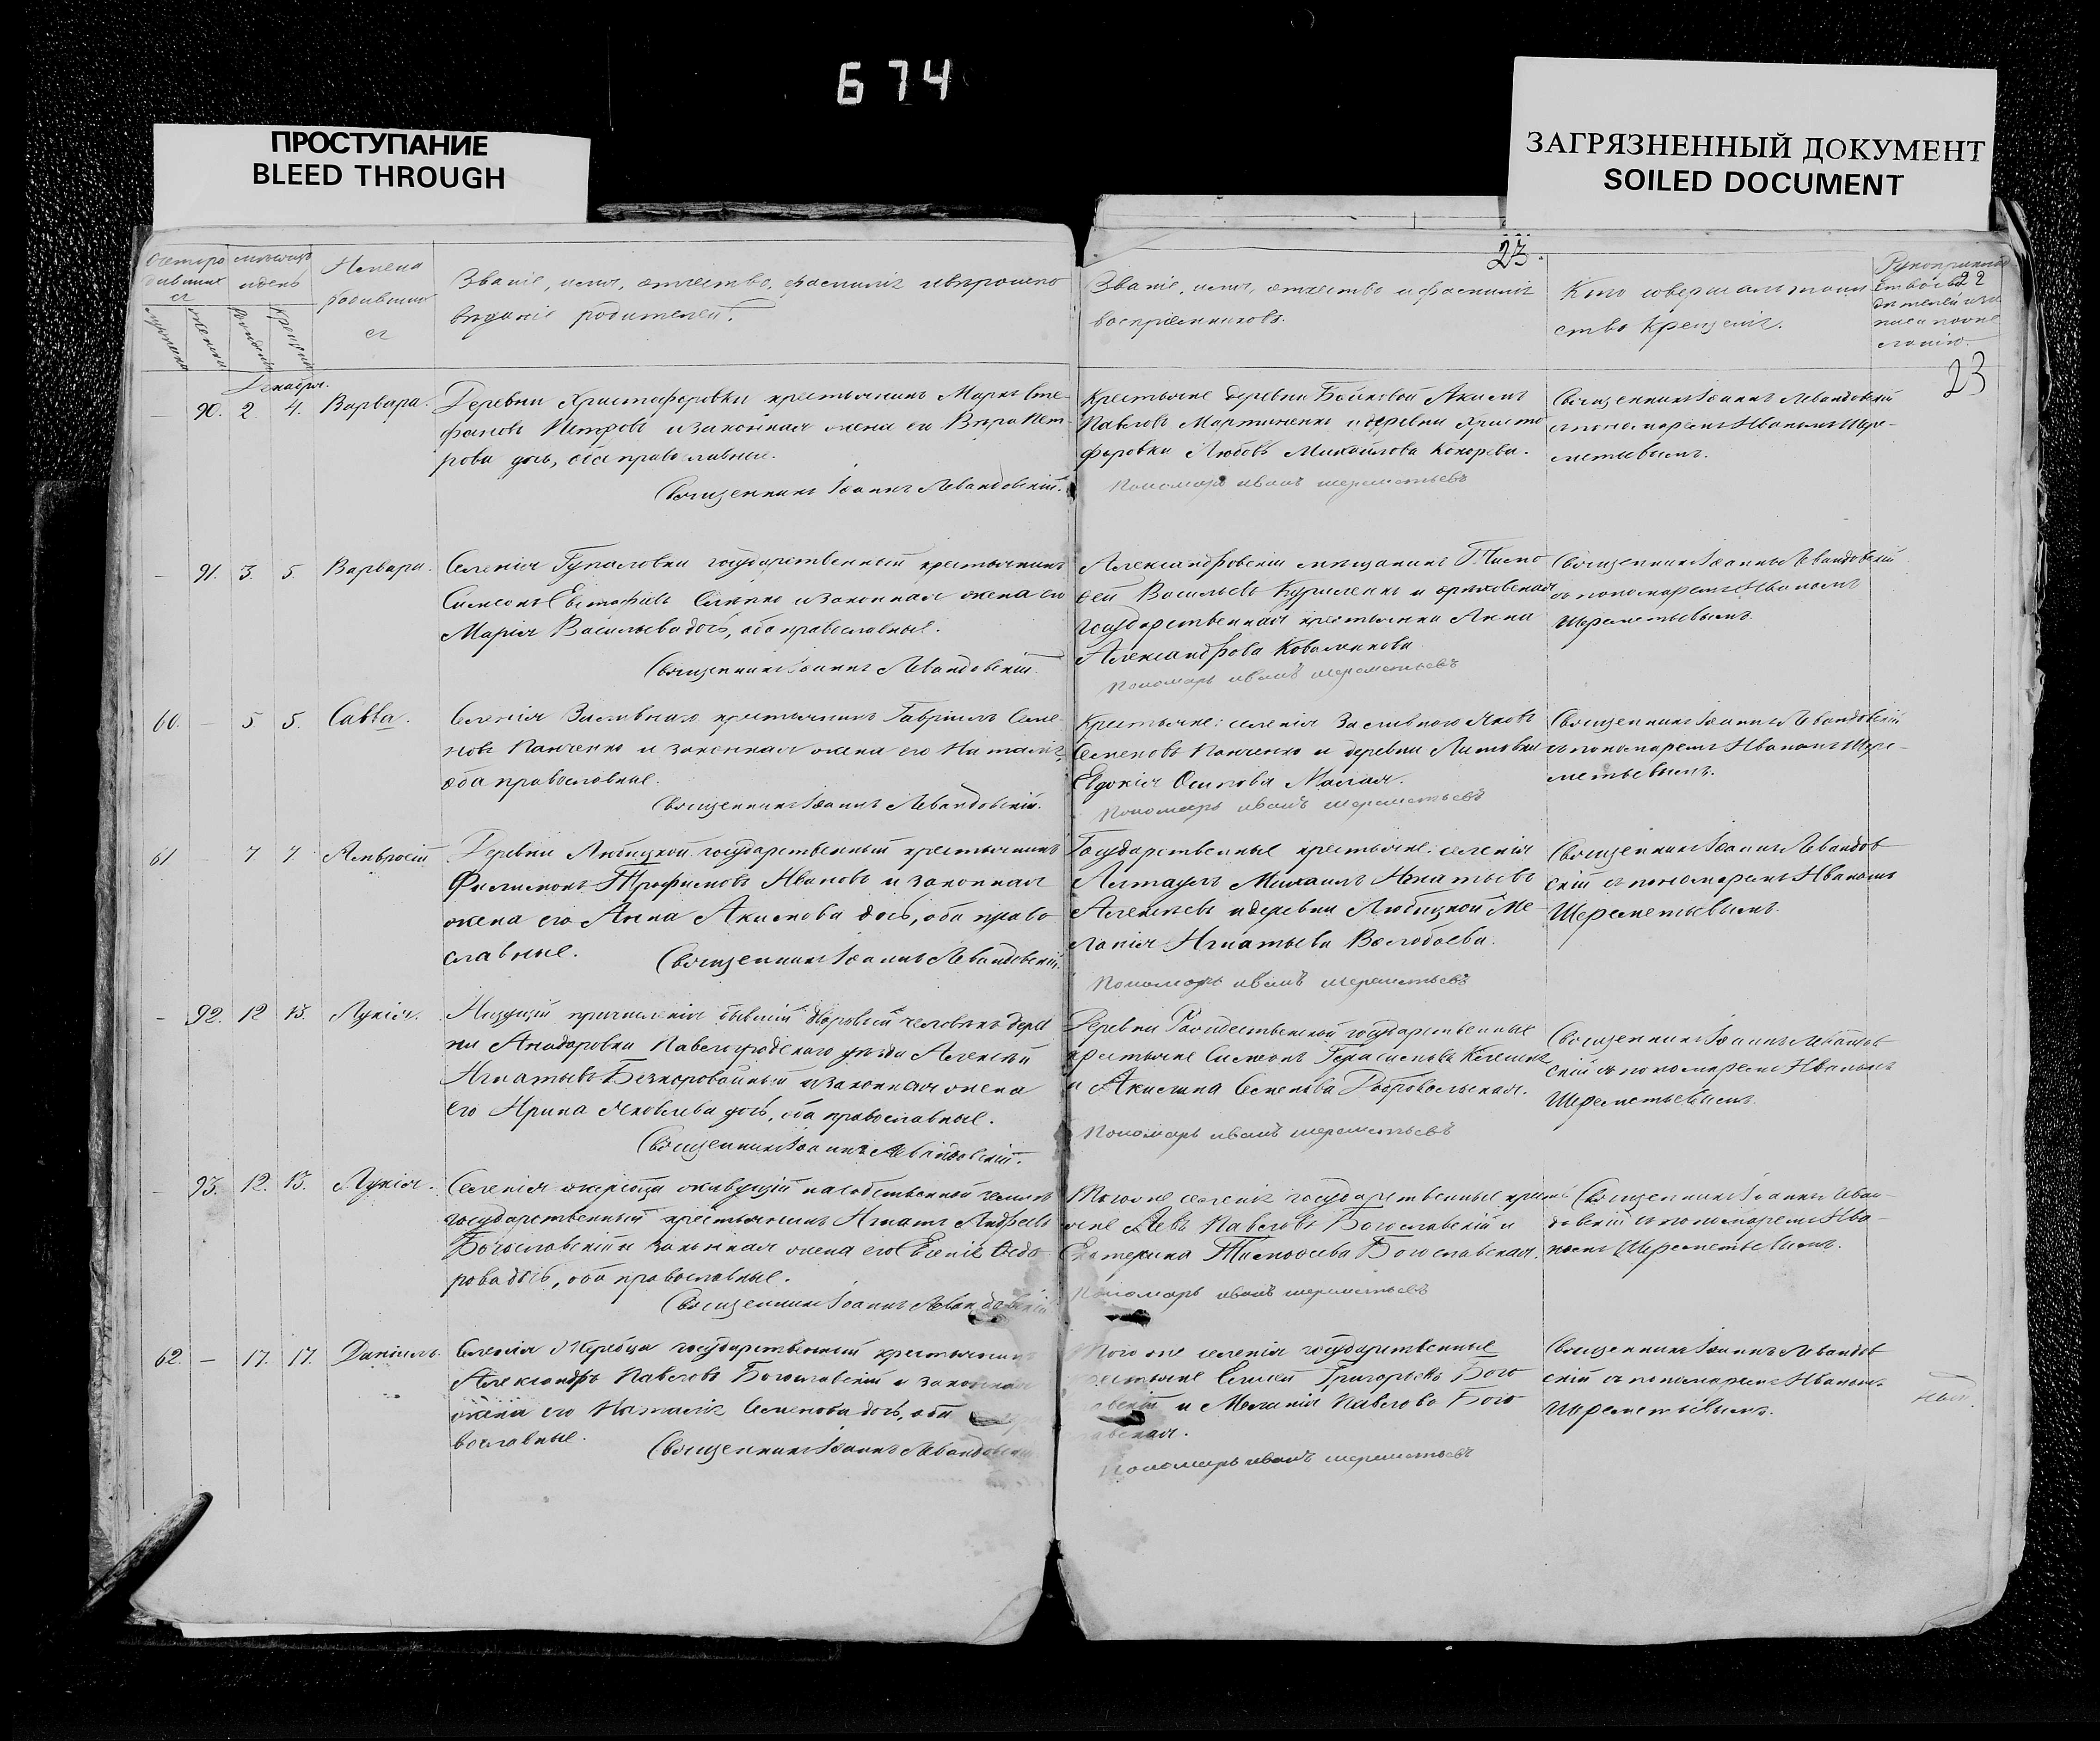 674
ПРОСТУПАНИЕ
BLEED THROUGH
ЗАГРЯЗНЕННЫЙ ДОКУМЕНТ
SOILED DOCUMENT
23.
22
23
Счетъ родившихся
мѣсяцъ и день
Имена родившихся
Званіе, имя, отчество, фамилія и вѣроисповѣданіе родителей.
Званіе, имя, отчество и фамилія
воспріемниковъ.
Кто совершалъ таин
ство Крещенія.
Декабрь.
90. 2. 4. Варвара.
Деревни Христофоровки крестьянинъ Маркъ Сте-
фановъ Петровъ и законная жена его Вѣра Пет
рова дочь, оба православные.
Священникъ Іоаннъ Левандовскій.
Крестьяне деревни Бойковой Акимъ
Павловъ Мартиненко и деревни Христо
форовки Любовь Михайлова Кокорева.
Пономарь иванъ шереметьевъ
Священникъ Іоаннъ Левандовскій
съ пономаремъ Иваномъ Шере-
метьевымъ.
91. 3. 5. Варвара.
Селенія Гупаловки государственный крестьянинъ
Симеонъ Евстафіевъ и законная жена его
Марія Васильева дочь, оба православные.
Священникъ Іоаннъ Левандовскій.
Александровскій мещанинъ Тимо
фей Васильевъ Куриленко и
государственная крестьянка Анна
Александрова Коваленкова
Пономарь иванъ шереметьевъ
Священникъ Іоаннъ Левандовскій
съ пономаремъ Иваномъ
Шереметьевымъ.
60. – 5 5. Савва.
Селенія Заливнаго крестьянинъ Гавріилъ Семе-
новъ Панченко и законная жена его Наталія,
оба православные.
Священникъ Іоаннъ Левандовскій.
Крестьяне: селенія Заливного Яковъ
Семеновъ Панченко и деревни Литовки
Евдокія Осипова Малая.
Пономарь иванъ шереметьевъ
Священникъ Іоаннъ Левандовскій
съ пономаремъ Иваномъ Шере-
метьевымъ.
61 7 7. Амвросій
Деревни Любицкой государственный крестьянинъ
Филимонъ Трофимовъ Ивановъ и законная
жена его Анна Акимова дочь, оба право
славные. Священникъ Іоаннъ Левандовскій.
Государственные крестьяне: селенія
Лштауль Михаилъ Игнатьевъ
Алексѣевъ и деревни Любицкой Ме
ланія Игнатьева Волобоева.
Пономарь иванъ шереметьевъ
Священникъ Іоаннъ Левандов
скій съ пономаремъ Иваномъ
Шереметьевымъ.
– 92. 12 13. Лукія.
Ищущій причисленія бывшій дворовый человѣкъ дерев
ни Павлоградскаго уѣзда Алексѣй
Игнатьевъ Безкоровайный и законная жена
его Ирина Яковлева дочь, оба православные.
Священникъ Іоаннъ Левандовскій.
Деревни Рождественской государственные
крестьяне Симеонъ Герасимовъ
и Акилина Семенова Добровольская.
Пономарь иванъ шереметьевъ
Священникъ Іоаннъ Левандов
скій съ пономаремъ Иваномъ
Шереметьевымъ.
– 93. 12. 13. Лукія.
Селенія Жеребца живущій на собственной землѣ
государственный крестьянинъ Игнатъ Андреевъ
Богославскій и законная жена его Евгенія Ѳедо
рова дочь, оба православные.
Священникъ Іоаннъ Левандовскій
Того же селенія государственные кресть
яне Левъ Павловъ Богославскій и
Екатерина Тимофеева Богославская.
Пономарь иванъ шереметьевъ
Священникъ Іоаннъ Леван-
довскій съ пономаремъ Ива-
номъ Шереметьевымъ.
62. – 17. 17. Даніилъ.
Селенія Жеребца государственный крестьянинъ
Александръ Павловъ Богославскій и законная
жена его Наталія Семенова дочь, оба
вославные. Священникъ Іоаннъ Левандовскій
Того же селенія государственные
крестьяне Елисей Григорьевъ Бого
славскій и Меланія Павлова Бого
славская.
Пономарь иванъ шереметьевъ
Священникъ Іоаннъ Левандов
скій съ пономаремъ Иваномъ
Шереметьевымъ.